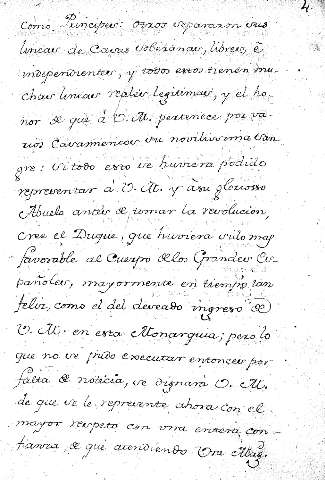 4.
como Principes: otros separaron sus
lineas de Casas Soberanas, libres, è
independientes, y todos estos tienen mu-
chas lineas reales legitimas, y el ho-
nor de que à V. M. pertenece por va-
rios Casamientos su novilissima san-
gre: si todo esto se huviera podido
representar à V. M. y à su glorioso
Abuelo antes de tomar la resolucion,
cree el Duque, que huviera sido mas
favorable al Cuerpo de los Grandes Es-
pañoles, mayormente en tiempo tan
feliz, como el del deseado ingreso de
V. M. en esta Monarquia; pero lo
que no se pudo executar entonces por
falta de noticia, se dignarà V. M.
de que se le represente ahora con el
mayor respeto con una entera con-
fianza de que atendiendo Vra Mag.